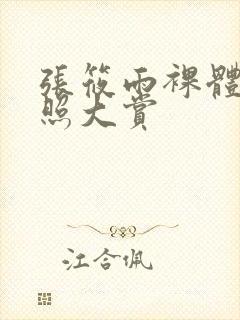 張筱雨裸體
照大賞
江合佩